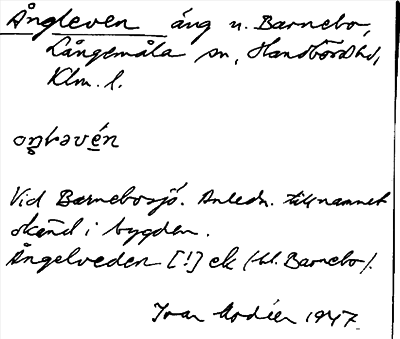 Ångleven äng u. Barnebo,
Långemåla sn, Handbörds hd,
Klm. l.
Vid Barnebosjö. Anledn. till namnet
okänd i bygden.
Ångelveden [!] ek (hl. Barnebo).
Ivar Modéer 1947.